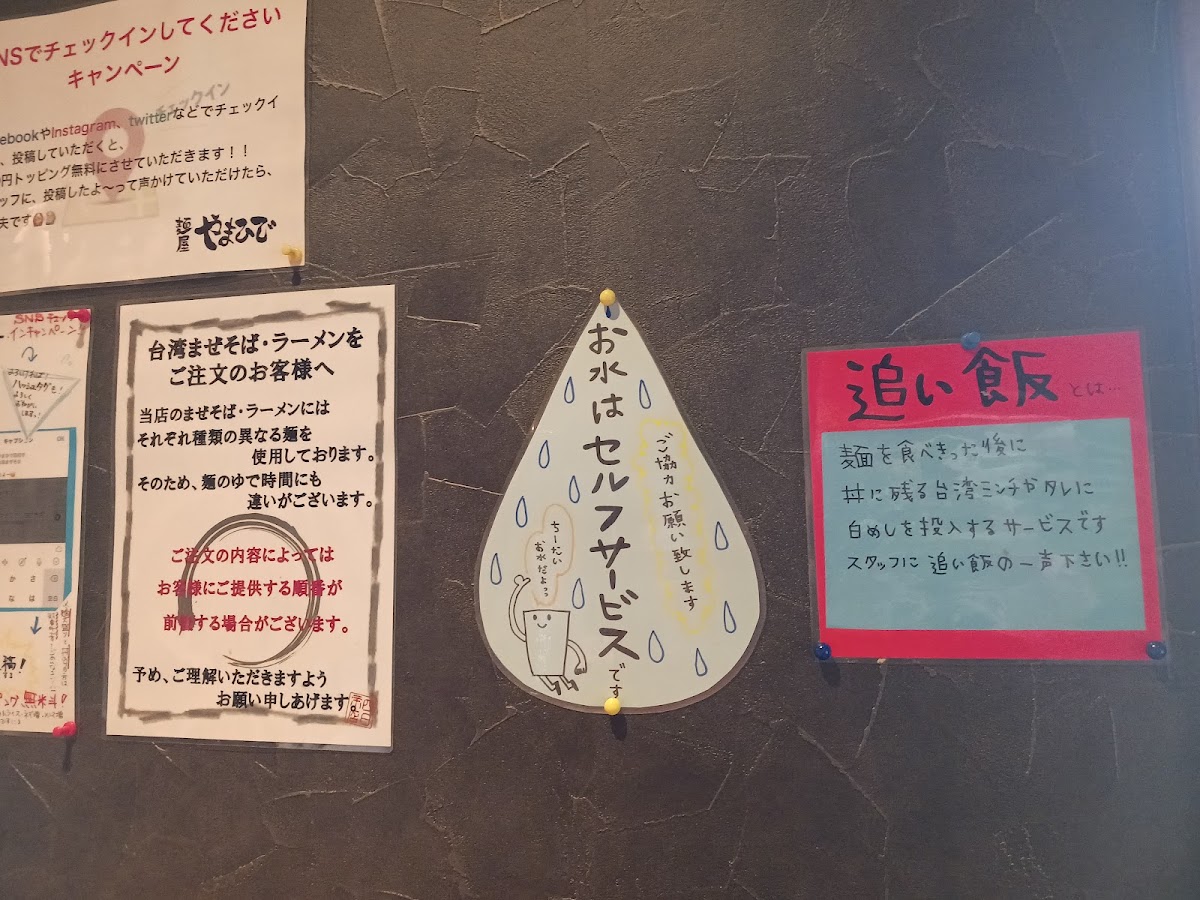 NSでチェックインしてください
キャンペーン
チェックイン
ebookやInstagram、twitterなどでチェックイ
、投稿していただくと、
円トッピング無料にさせていただきます!!
ッフに、投稿したよ〜って声かけていただけたら、
夫です
麺屋 やまひで
SNSチェック
インキャンペーン
台湾まぜそば・ラーメンを
ご注文のお客様へ
当店のまぜそば・ラーメンには
それぞれ種類の異なる麺を
使用しております。
そのため、麺のゆで時間にも
違いがございます。
ご注文の内容によっては
お客様にご提供する順番が
前後する場合がございます。
予め、ご理解いただきますよう
お願い申しあげます
お水はセルフサービスです
ご協力お願い致します
お水だよっ
追い飯とは…
麺を食べきった後に
丼に残る台湾ミンチやタレに
白めしを投入するサービスです
スタッフに追い飯の一声下さい!!